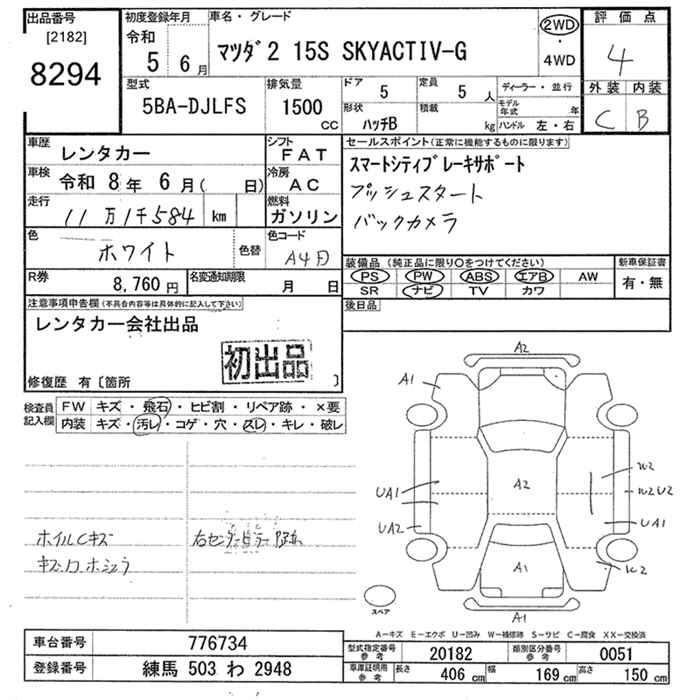 出品番号
[2182]
8294
初度登録年月
令和
5 6月
車名・グレード
マツダ2 15S SKYACTIV-G
2WD
・
4WD
評価点
4
外装 内装
C B
型式
5BA-DJLFS
排気量
1500
CC
ドア
5
形状
ハッチB
定員
5 人
積載
kg
ディーラー・並行
モデル年式 年
ハンドル 左・右
車歴
レンタカー
車検
令和 8年 6月( 日)
走行
11万1千584 km
シフト
FAT
冷房
AC
燃料
ガソリン
セールスポイント(正常に機能するものに限ります)
スマートシティブレーキサポート
プッシュスタート
バックカメラ
色
ホワイト
色替
色コード
A4D
R券
8,760円
名変通知期限
月 日
装備品(純正品に限り○をつけてください)
PS PW ABS エアB AW
SR ナビ TV カワ
新車保証書
有・無
後日品
注意事項申告欄(不具合内容等は具体的に記入して下さい)
レンタカー会社出品
初出品
修復歴 有〔箇所 〕
検査員記入欄
FW キズ・飛石・ヒビ割・リペア跡・×要
内装 キズ・汚レ・コゲ・穴・スレ・キレ・破レ
ホイルCキズ
A2
A1
A2
UA1
UA2
W2
W2 U2
UA1
A1
A1
スペア
A-キズ E-エクボ U-凹み W-補修跡 S-サビ C-腐食 XX-交換済
車台番号
776734
登録番号
練馬 503 わ 2948
型式指定番号
参考
20182
類別区分番号
参考
0051
車庫証明用
参考
長さ 406 cm 幅 169 cm 高さ 150 cm